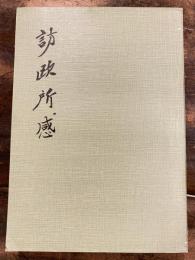 訪欧所感